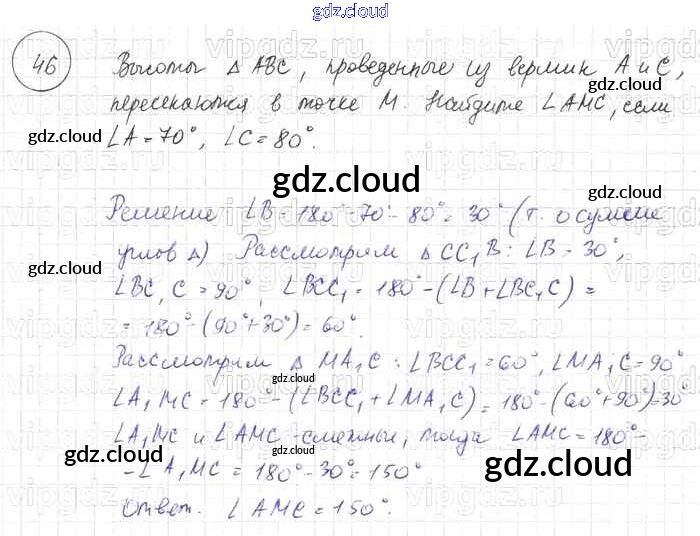 gdz.cloud
46 Высоты △ ABC, проведенные из вершин A и C,
пересекаются в точке M. Найдите ∠AMC, если
∠A = 70°, ∠C = 80°.
gdz.cloud
gdz.cloud
gdz.cloud
Решение ∠B = 180° - 70° - 80° = 30° (т. о сумме
gdz.cloud
углов △) Рассмотрим △ CC₁B : ∠B = 30°,
gdz.cloud
∠BC₁C = 90°, ∠BCC₁ = 180° - (∠B + ∠BC₁C) =
= 180° - (90° + 30°) = 60°.
Рассмотрим △ MA₁C : ∠BCC₁ = 60°, ∠MA₁C = 90°
gdz.cloud
∠A₁MC = 180° - (∠BCC₁ + ∠MA₁C) = 180° - (60° + 90°) = 30°
∠A₁MC и ∠AMC - смежные, тогда ∠AMC = 180° -
gdz.cloud
gdz.cloud
- ∠A₁MC = 180° - 30° = 150°
Ответ. ∠AMC = 150°.
gdz.cloud